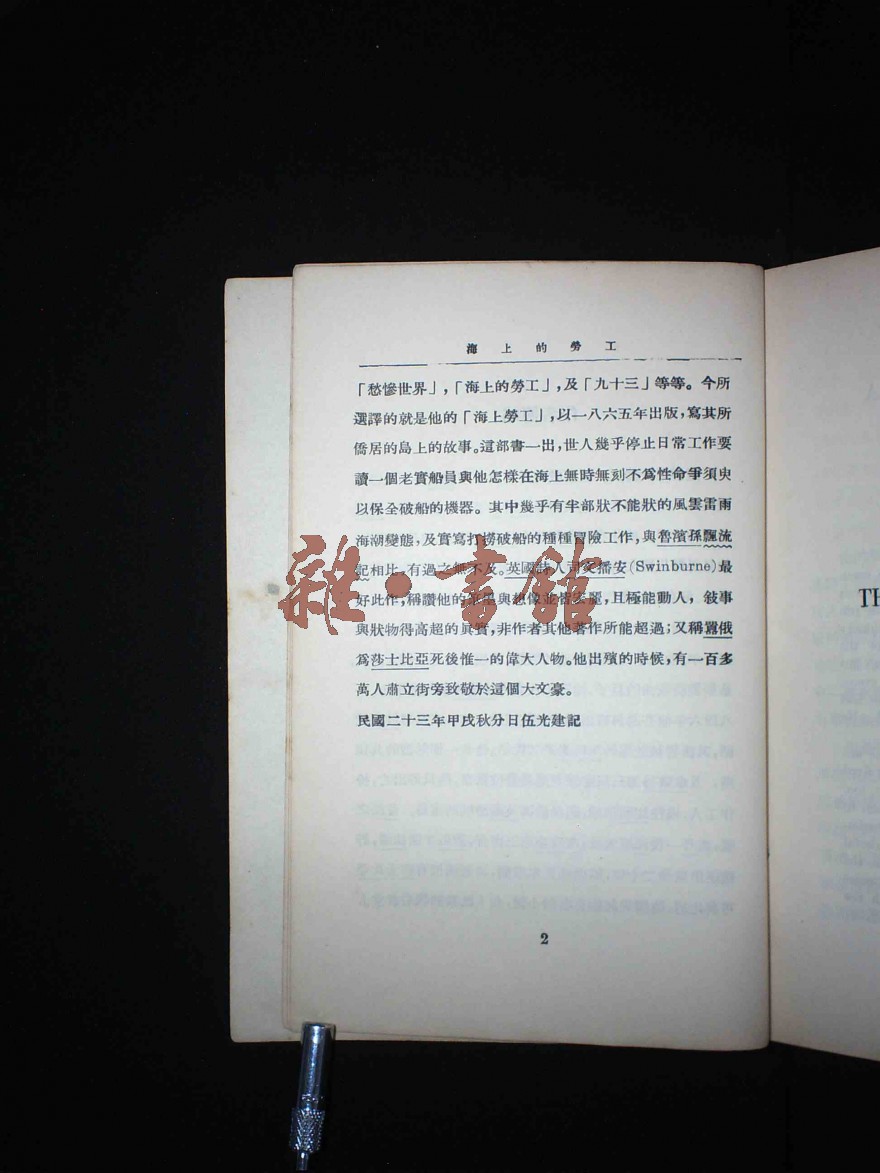 海上的勞工
「愁慘世界」,「海上的勞工」,及「九十三」等等。今所
選譯的就是他的「海上勞工」,以一八六五年出版,寫其所
僑居的島上的故事。這部書一出,世人幾乎停止日常工作要
讀一個老實船員與他怎樣在海上無時無刻不爲性命爭須臾
以保全破船的機器。其中幾乎有半部狀不能狀的風雲雷雨
海潮變態,及實寫打撈破船的種種冒險工作,與魯濱孫飄流
記相比,有過之無不及。英國詩人司文播安(Swinburne)最
好此作,稱讚他的筆墨與想像並皆宏麗,且極能動人,敍事
與狀物得高超的眞實,非作者其他著作所能超過;又稱囂俄
爲莎士比亞死後惟一的偉大人物。他出殯的時候,有一百多
萬人肅立街旁致敬於這個大文豪。
民國二十三年甲戌秋分日伍光建記
2
雜·書館
TH